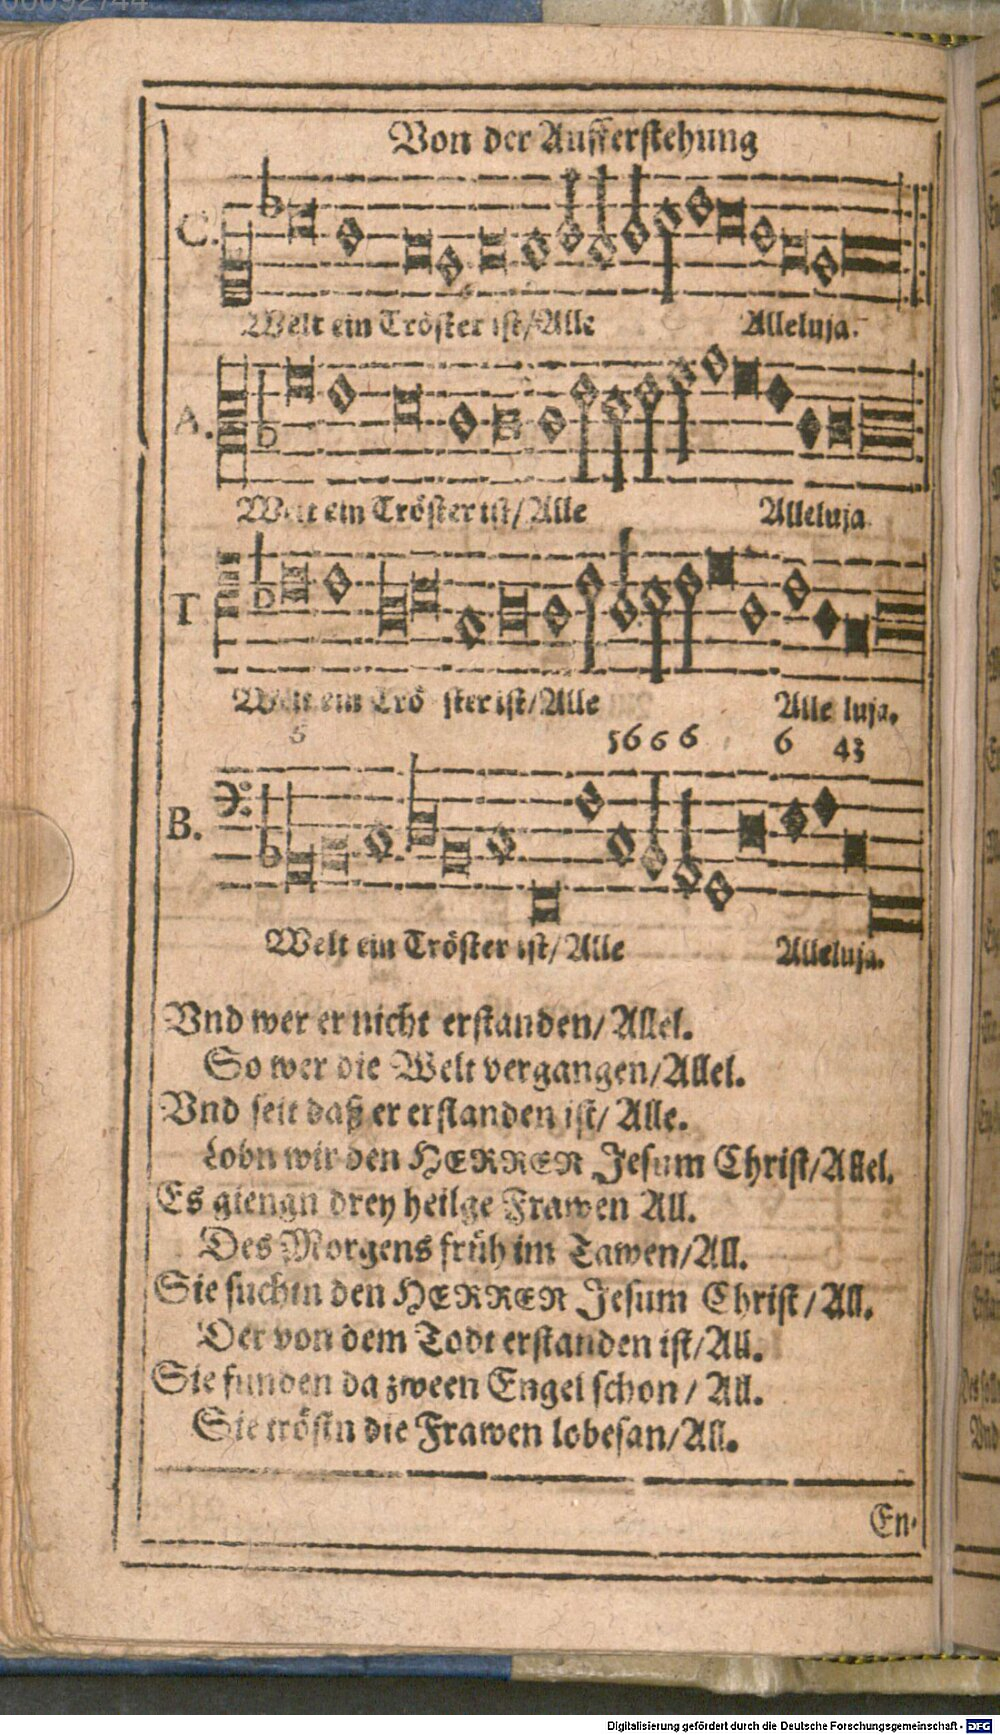 00092744
Von der Aufferstehung
C.
Welt ein Tröster ist/ Alle Alleluja.
A.
Welt ein Tröster ist/ Alle Alleluja
T
Welt ein Trö ster ist/ Alle Alle luja.
6 56 6 6 6 43
B.
Welt ein Tröster ist/ Alle Alleluja.
Vnd wer er nicht erstanden/ Allel.
So wer die Welt vergangen/ Allel.
Vnd seit daß er erstanden ist/ Alle.
Lobn wir den HERREN Jesum Christ/ Allel.
Es giengn drey heilge Frawen All.
Des Morgens früh im Tawen/ All.
Sie suchtn den HERREN Jesum Christ/ All.
Der von dem Todt erstanden ist/ All.
Sie funden da zween Engel schon/ All.
Sie tröstn die Frawen lobesan/ All.
En-
Digitalisierung gefördert durch die Deutsche Forschungsgemeinschaft - DFG